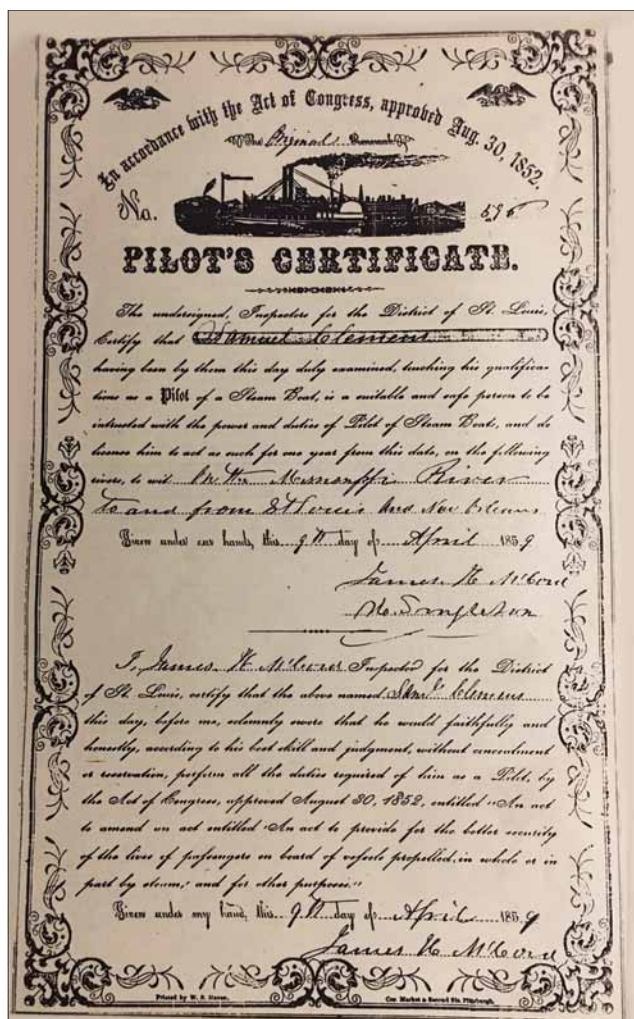 In accordance with the Act of Congress, approved Aug. 30, 1852.
The Original
No.
PILOT'S CERTIFICATE.
The undersigned, Inspectors for the District of St. Louis,
Certify that Samuel Clemens
having been by them this day duly examined, touching his qualifica-
tions as a Pilot of a Steam Boat, is a suitable and safe person to be
intrusted with the power and duties of Pilot of Steam Boats, and do
license him to act as such for one year from this date, on the following
rivers, to wit On the Mississippi River
to and from St Louis and New Orleans
Given under our hands, this 9th day of April 1859
James H McCord
Singleton
I, James H McCord Inspector for the District
of St. Louis, certify that the above named Saml Clemens
this day, before me, solemnly swore that he would faithfully and
honestly, according to his best skill and judgment, without concealment
or reservation, perform all the duties required of him as a Pilot, by
the Act of Congress, approved August 30, 1852, entitled "An act
to amend an act entitled "An act to provide for the better security
of the lives of passengers on board of vessels propelled, in whole or in
part by steam," and for other purposes."
Given under my hand, this 9th day of April 1859
James H McCord
Printed by W. S. Haven. Cor. Market & Second Sts. Pittsburgh.